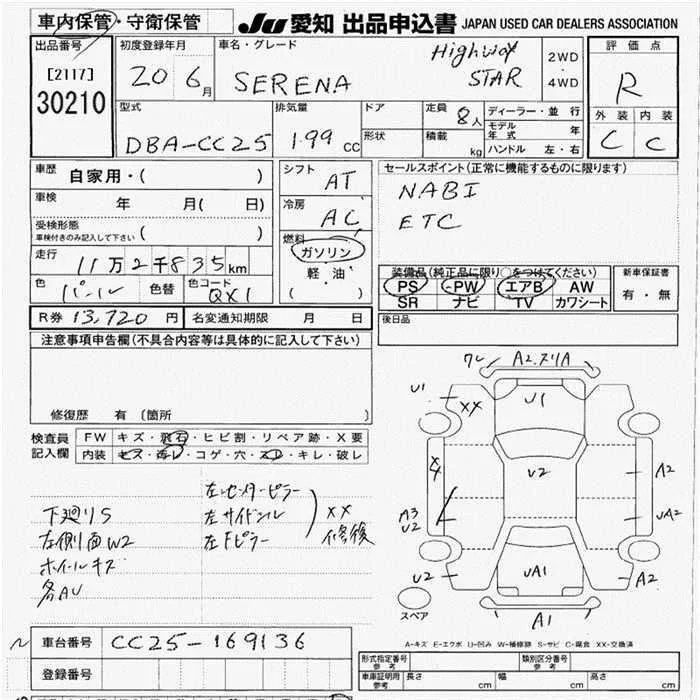 車内保管・守衛保管 JU 愛知 出品申込書 JAPAN USED CAR DEALERS ASSOCIATION
出品番号 初度登録年月 車名・グレード 評価点
[2117]
30210
20 6月 SERENA Highway STAR 2WD 4WD R
型式 排気量 ドア 定員 8人 ディーラー・並行 外装 内装
DBA-CC25 1.99 cc 形状 積載 kg モデル年式 年 C C
ハンドル 左・右
車歴 自家用・( )
シフト AT
セールスポイント(正常に機能するものに限ります)
NABI
ETC
車検 年 月(日)
冷房 AC
受検形態
車検付きのみ記入して下さい ( )
燃料 ガソリン 軽油 ( )
走行 11万2千835km
装備品(純正品に限り○をつけてください) 新車保証書
PS PW エアB AW 有・無
SR ナビ TV カワシート
色 パール 色替 色コード QX1
R券 13,720円 名変通知期限 月 日
後日品
注意事項申告欄(不具合内容等は具体的に記入して下さい)
修復歴 有 (箇所
検査員記入欄 FW キズ・飛石・ヒビ割・リペア跡・X要
内装 キズ・汚レ・コゲ・穴・スレ・キレ・破レ
下廻りS
左側面W2
ホイールキズ
各AU
左センターピラー
左サイドシル
左Fピラー
XX
修復
ワレ A2.ヌリA
U1 XX U1
X4 U2 A2
A3 U2 UA2
U2 UA1 A2
スペア A1
A-キズ E-エクボ U-凹み W-補修跡 S-サビ C-腐食 XX-交換済
車台番号 CC25-169136
登録番号
形式指定番号 参考 類別区分番号 参考
車庫証明用 参考 長さ cm 幅 cm 高さ cm